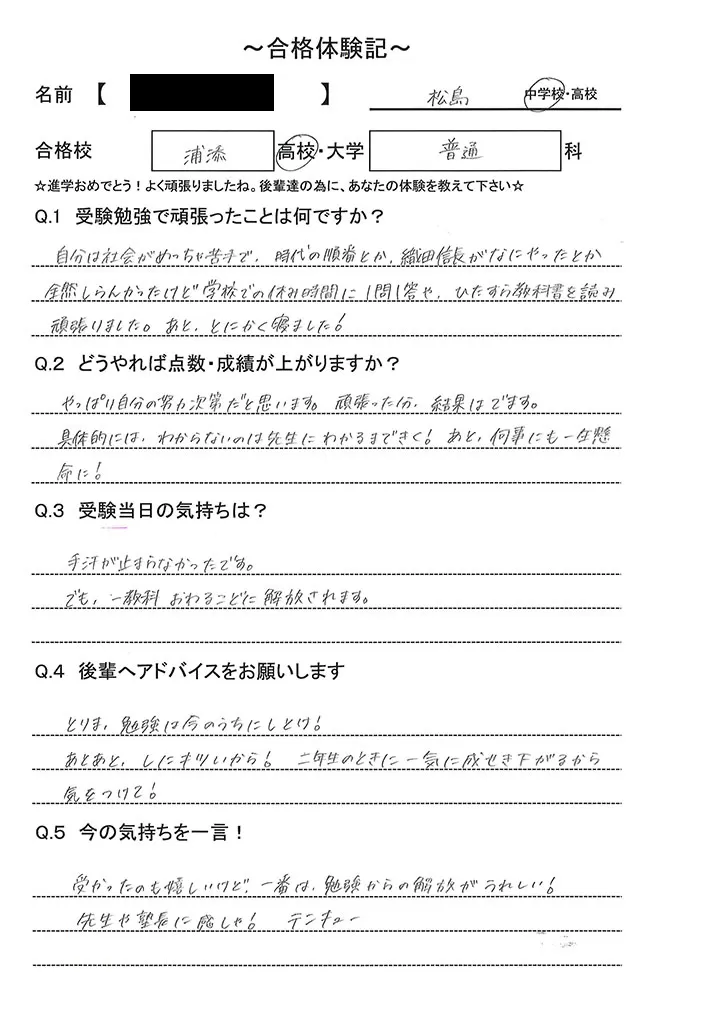 ～合格体験記～
名前 【 】 松島 中学校・高校
合格校 浦添 高校・大学 普通 科
☆進学おめでとう！よく頑張りましたね。後輩達の為に、あなたの体験を教えて下さい☆
Q.1 受験勉強で頑張ったことは何ですか？
自分は社会がめっちゃ苦手で、時代の順番とか、織田信長がなにやったとか
全然しらんかったけど学校での休み時間に1問1答や、ひたすら教科書を読み
頑張りました。あと、とにかく寝ました！
Q.2 どうやれば点数・成績が上がりますか？
やっぱり自分の努力次第だと思います。頑張った分、結果はでます。
具体的には、わからないのは先生にわかるまできく！あと、何事にも一生懸
命に！
Q.3 受験当日の気持ちは？
手汗が止まらなかったです。
でも、一教科おわるごとに解放されます。
Q.4 後輩へアドバイスをお願いします
とりま、勉強は今のうちにしとけ！
あとあと、しにキツいから！ 二年生のときに一気に成せき下がるから
気をつけて！
Q.5 今の気持ちを一言！
受かったのも嬉しいけど、一番は、勉強からの解放がうれしい！
先生や塾長に感しゃ！ テンキュー